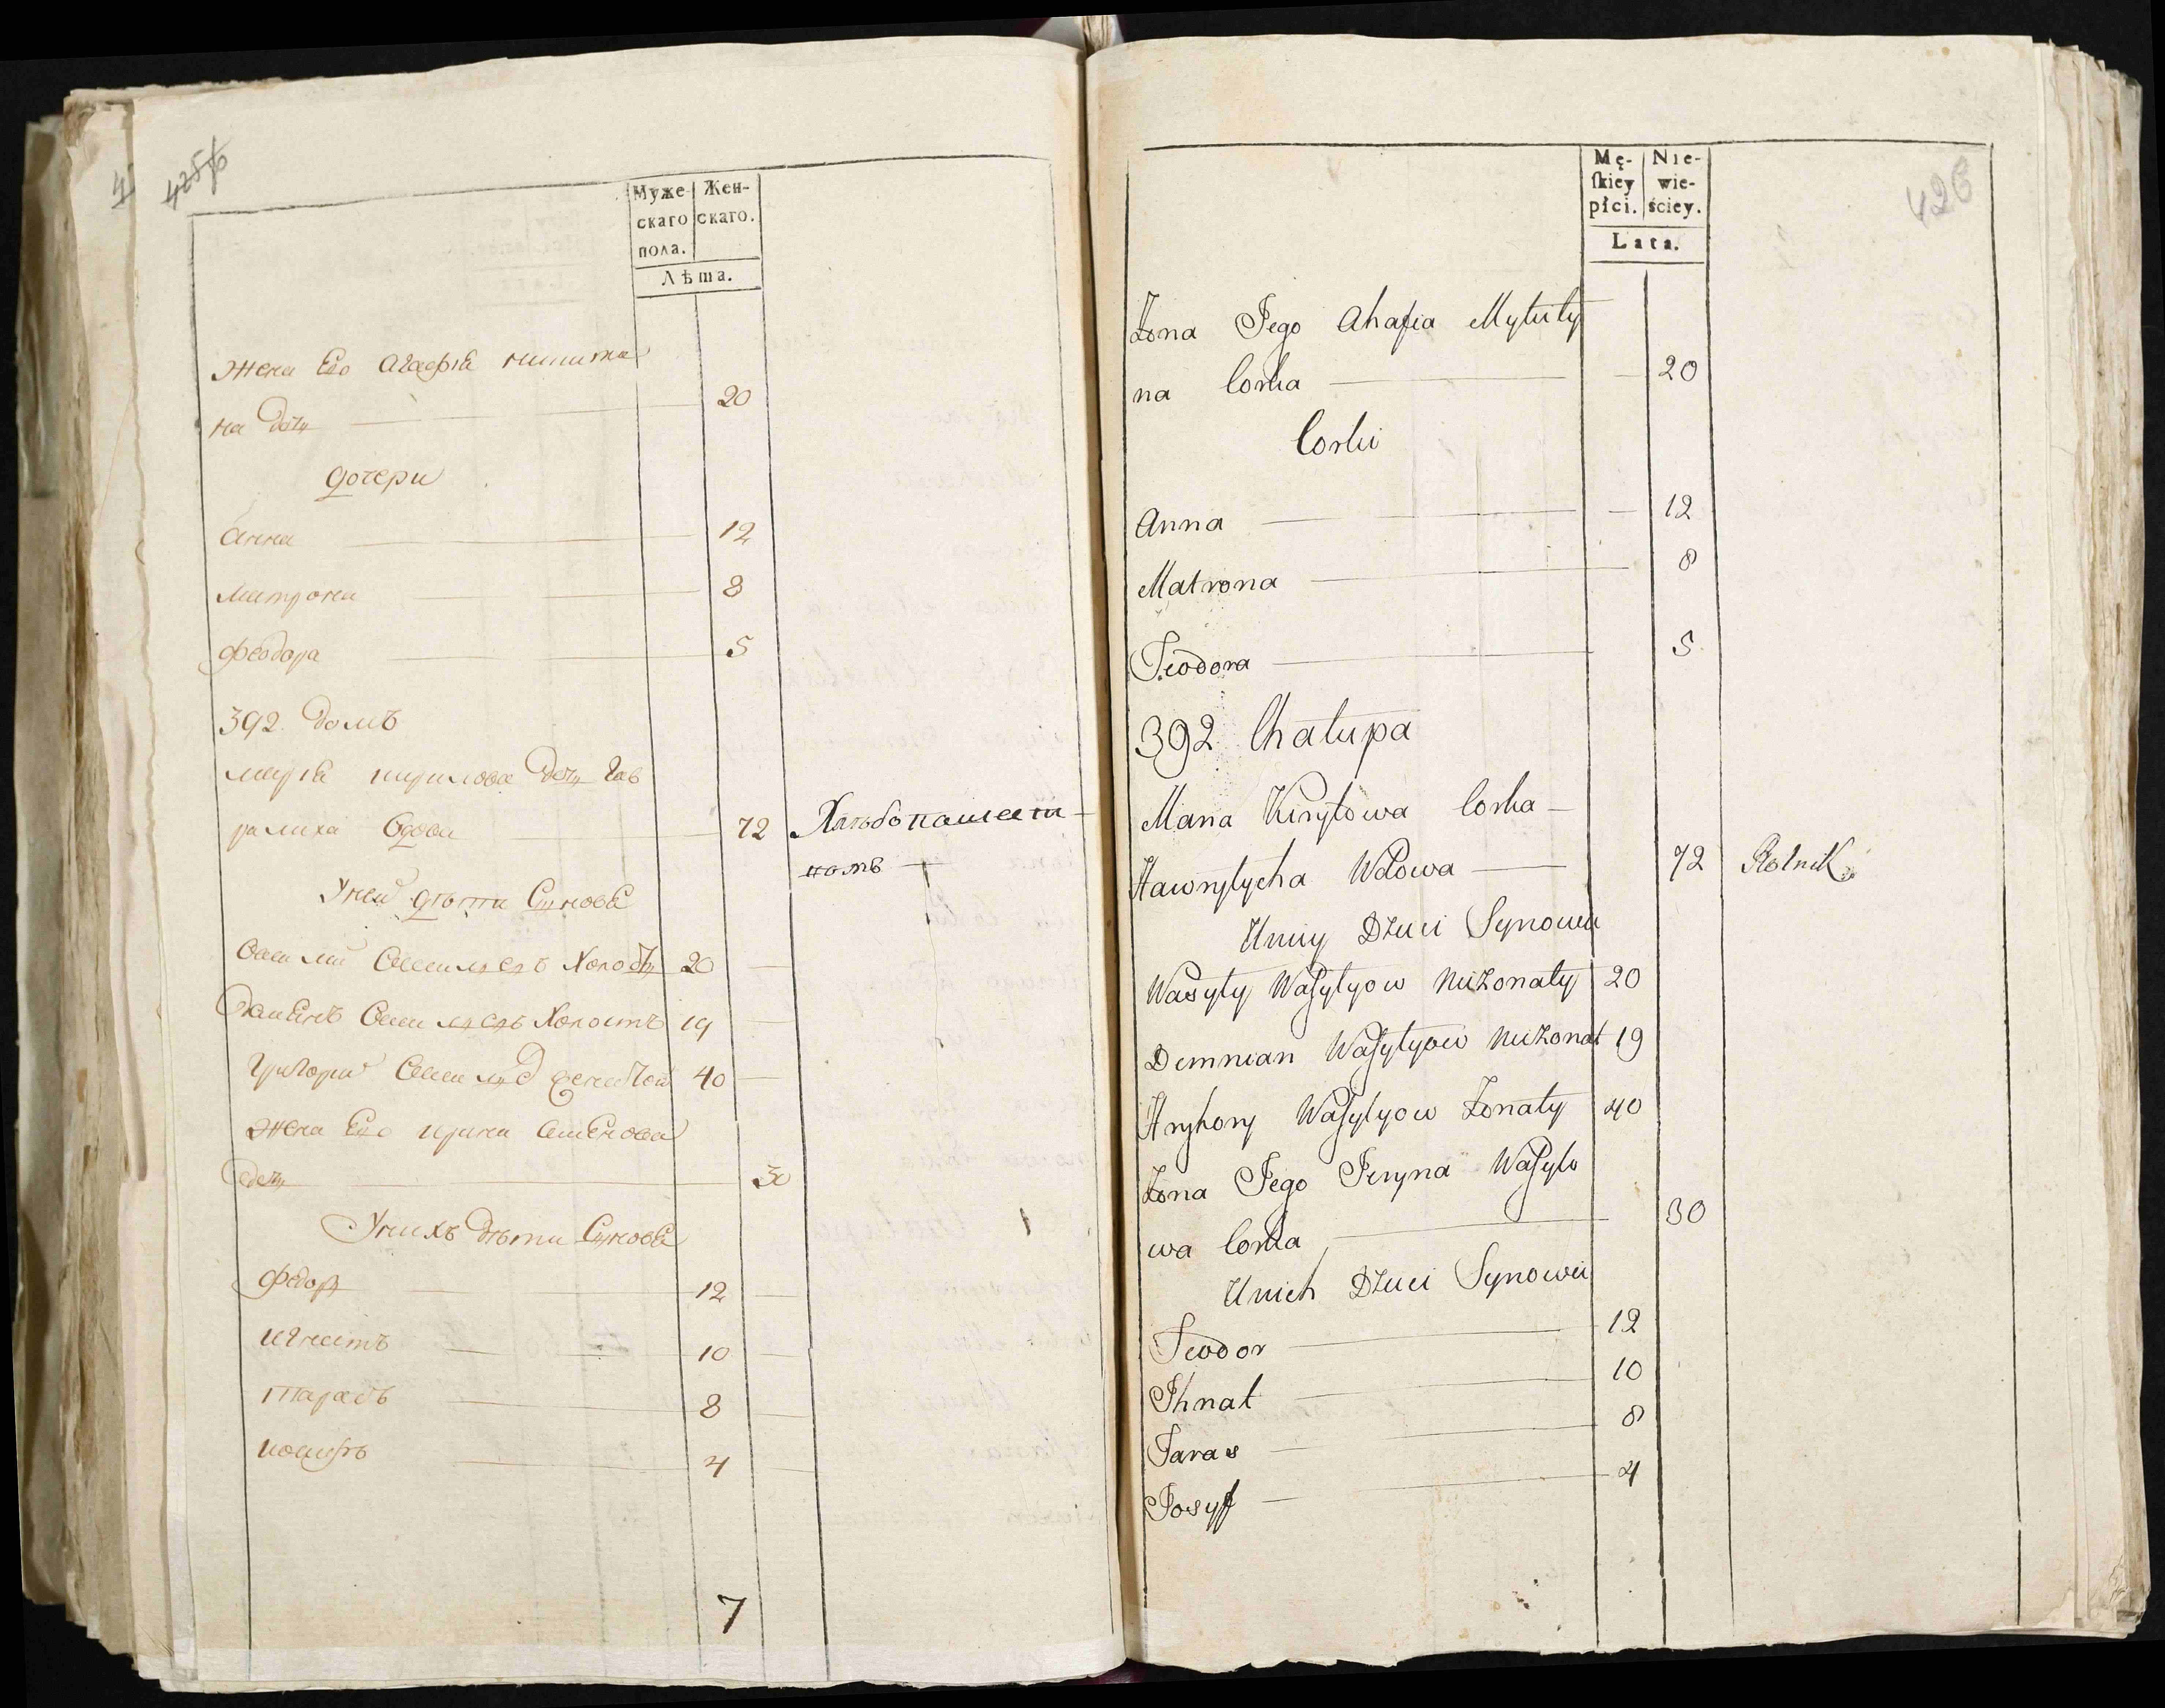 425об
Муже-
скаго
пола.
Жен-
скаго.
Лѣта.
жена Его Агафiя никита
на дочь 20
дочери
Анна 12
матрона 8
феодора 5
392 домъ
марiя кирилова дочь гав
рилиха вдова 72 Хлѣбопашест
вомъ
У неи дѣти Сыновья
василь васильевъ Холостъ 20
Дамянъ васильевъ Холостъ 19
григорий васильев женатой 40
жена Его ирина семенова
дочь 30
У нихъ дѣти Сыновья
федор 12
игнатъ 10
тарасъ 8
иосифъ 4
7
426
Mę-
skiey
płci.
Nie-
wie-
ściey.
Lata.
Żona Jego Ahafia Mykity
na Corka 20
Corki
Anna 12
Matrona 8
Teodora 5
392 Chałupa
Maria Kiryłowa Corka
Hawryłycha Wdowa 72 Rolnik
U niey Dzieci Synowie
Wasyly Wasylyow Nieżonaty 20
Demnian Wasylyow Nieżonat 19
Hryhory Wasylyow Żonaty 40
Żona Jego Jeryna Wasylo
wa Corka 30
U nich Dzieci Synowie
Teodor 12
Ihnat 10
Taras 8
Josyf 4